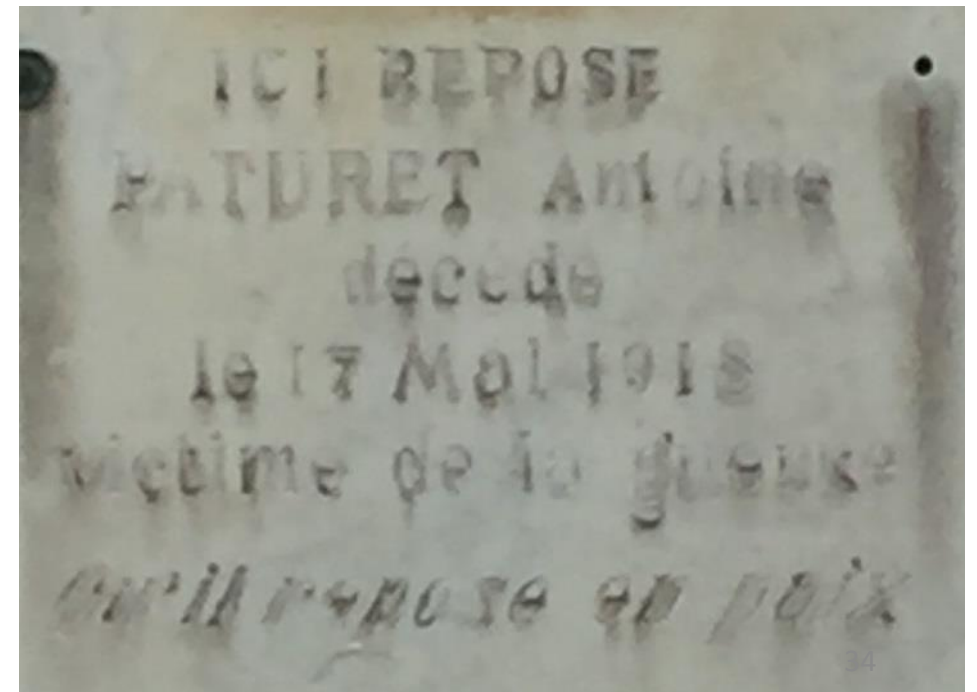 ICI REPOSE
PATURET Antoine
décédé
le 17 Mai 1918
victime de la
qu'il repose en paix
34